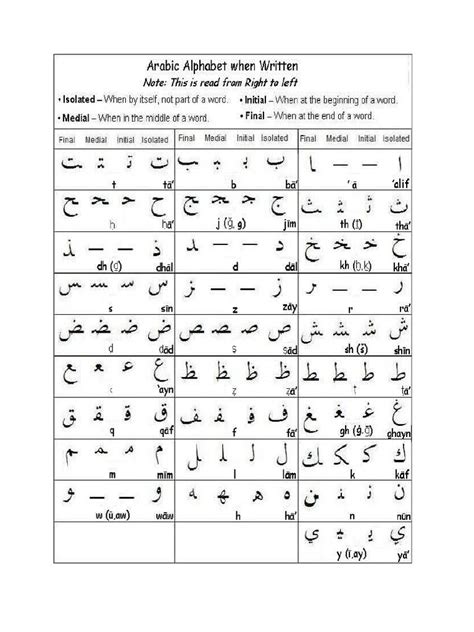 Arabic Alphabet when Written
Note: This is read from Right to left
• Isolated – When by itself, not part of a word. • Initial – When at the beginning of a word.
• Medial – When in the middle of a word. • Final – When at the end of a word.
Final Medial Initial Isolated Final Medial Initial Isolated Final Medial Initial Isolated
ا — — ـا ب بـ ـبـ ـب ت تـ ـتـ ـت
t tā' b bā' 'ā 'alif
ث ثـ ـثـ ـث ج جـ ـجـ ـج ح حـ ـحـ ـح
ḥ ḥā' j (ğ, g) jīm th (ṯ) thā'
خ خـ ـخـ ـخ د — — ـد ذ — — ـذ
dh (ḏ) dhāl d dāl kh (ḫ,ḵ) khā'
ر — — ـر ز — — ـز س سـ ـسـ ـس
s sīn z zāy r rā'
ش شـ ـشـ ـش ص صـ ـصـ ـص ض ضـ ـضـ ـض
ḍ ḍād ṣ ṣād sh (š) shīn
ط طـ ـطـ ـط ظ ظـ ـظـ ـظ ع عـ ـعـ ـع
'ayn ẓ ẓā' ṭ ṭā'
غ غـ ـغـ ـغ ف فـ ـفـ ـف ق قـ ـقـ ـق
q qāf f fā' gh (ġ,ḡ) ghayn
ك كـ ـكـ ـك ل لـ ـلـ ـل م مـ ـمـ ـم
m mīm l lām k kāf
ن نـ ـنـ ـن ه هـ ـهـ ـه و — — ـو
w (ū,aw) wāw h hā' n nūn
ي يـ ـيـ ـي
y (ī,ay) yā'